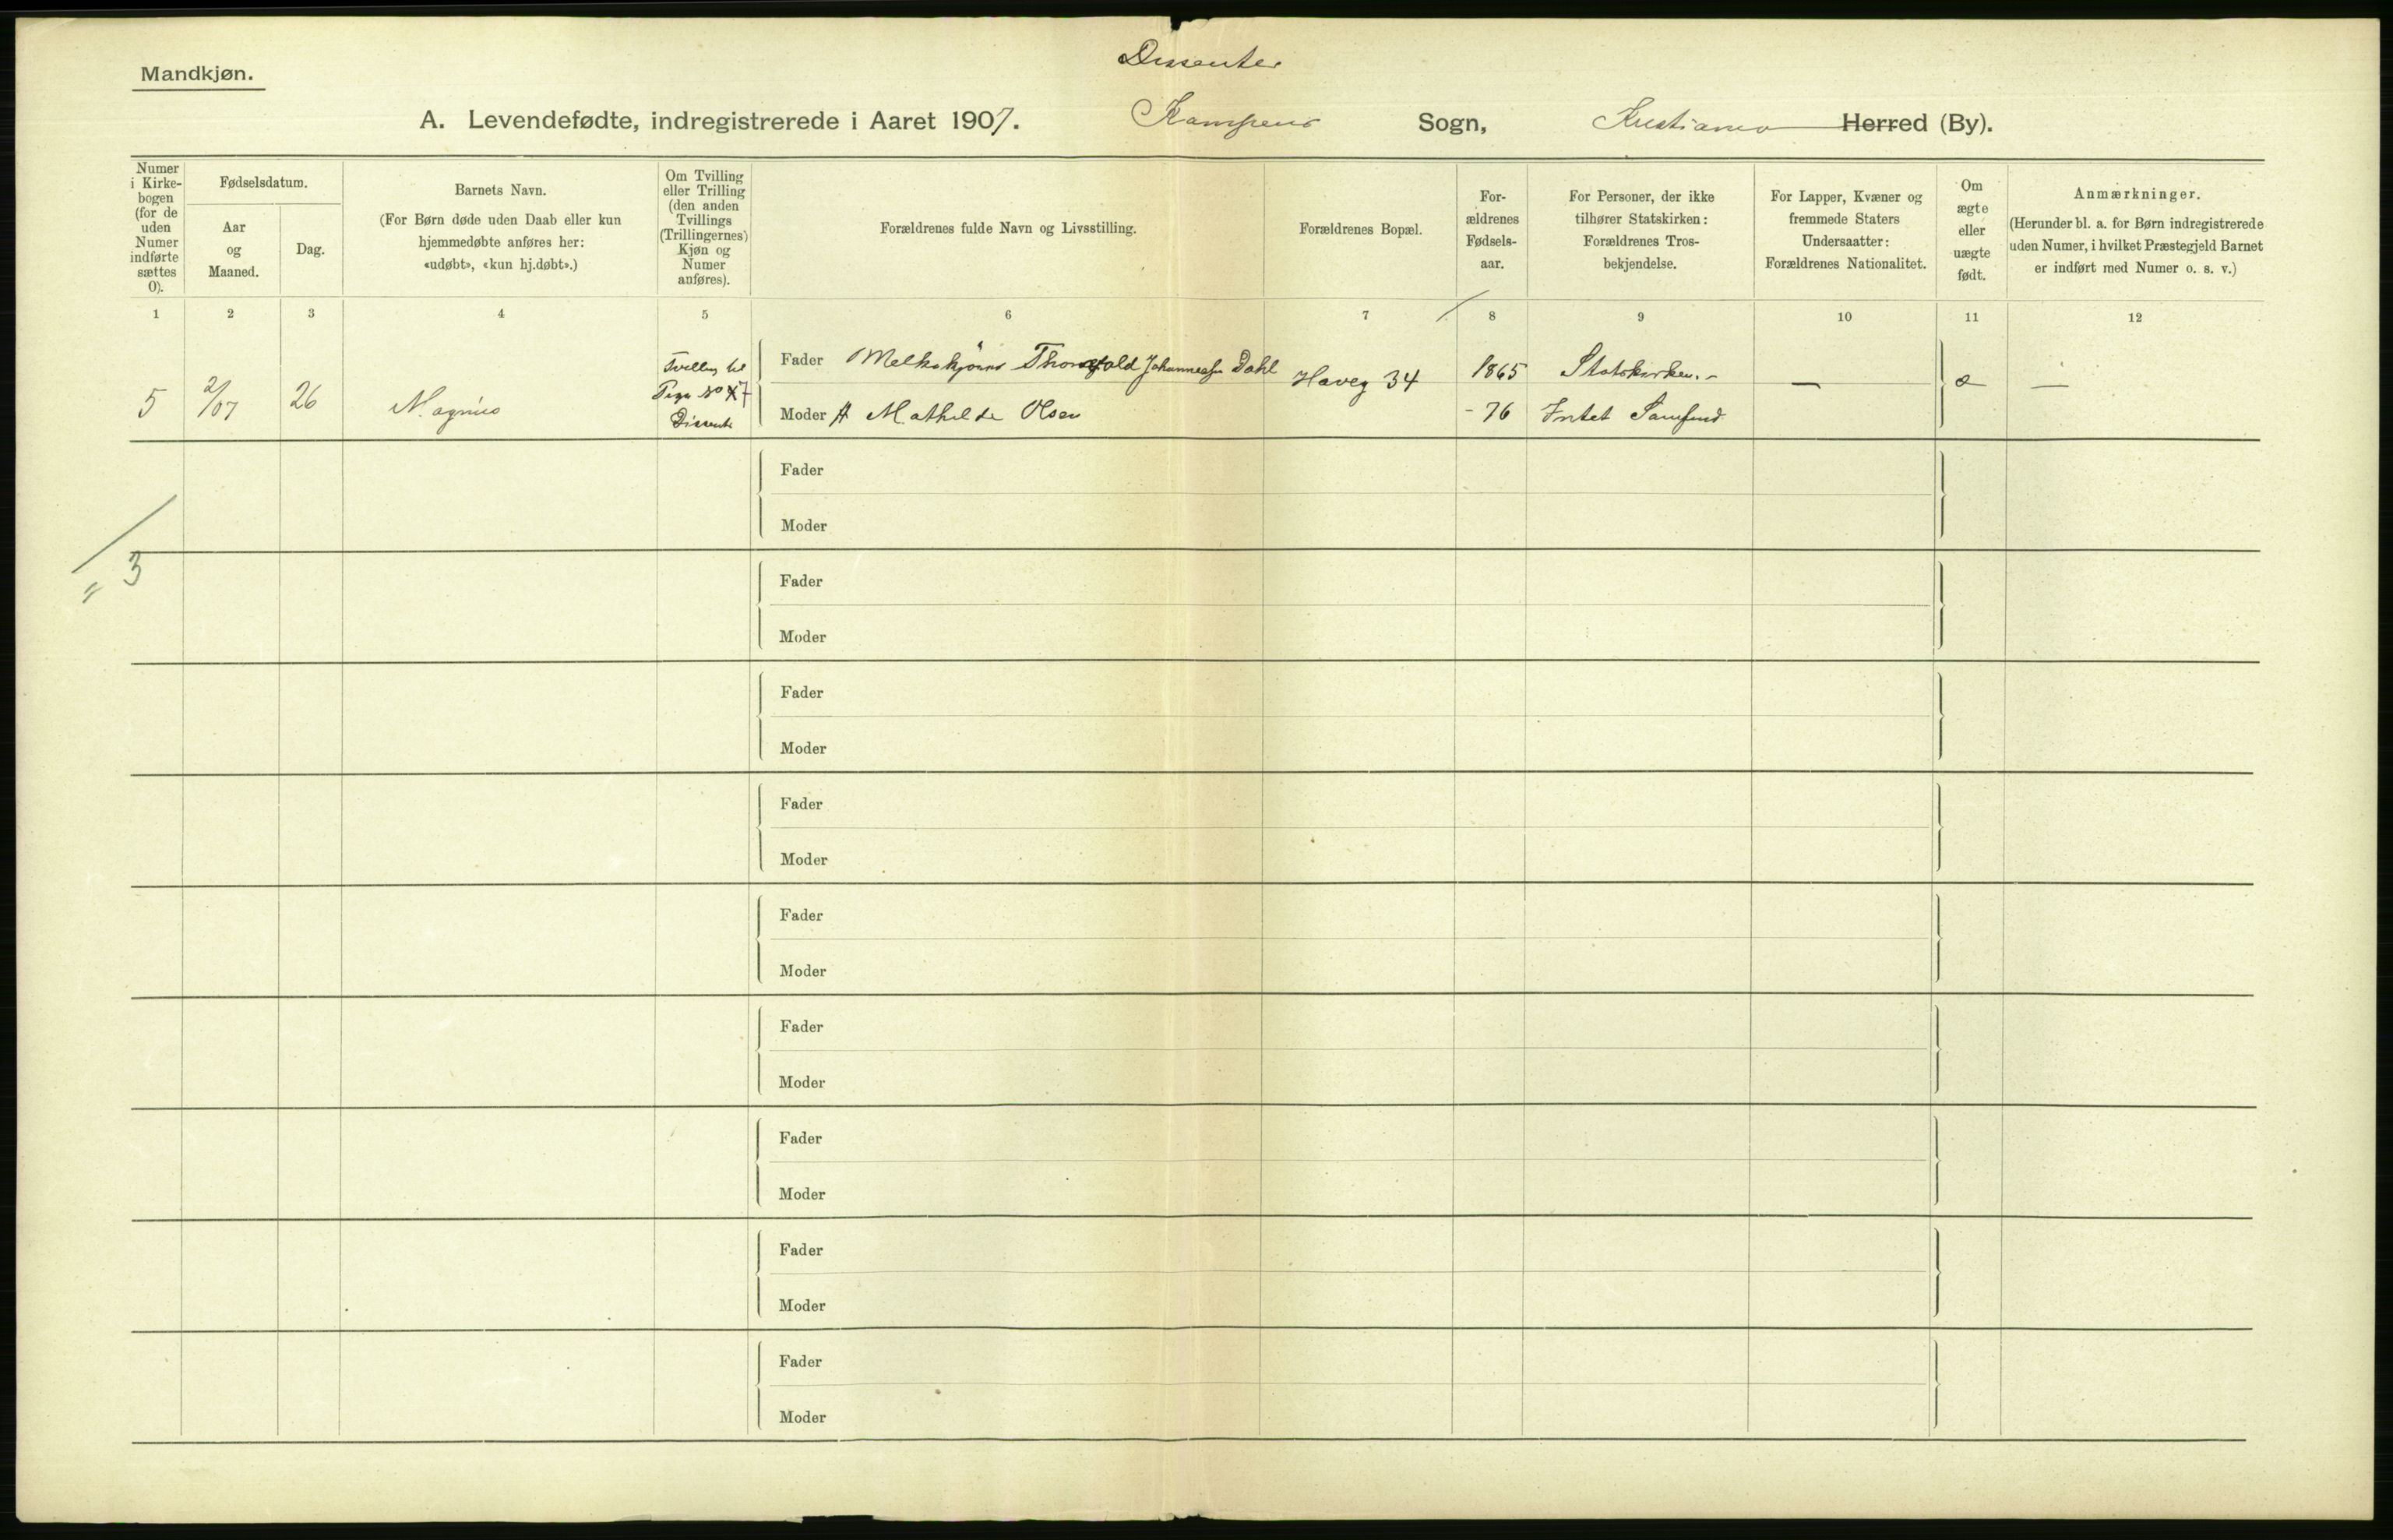 Mandkjøn.
Dissenter
A. Levendefødte, indregistrerede i Aaret 1907. Kampens Sogn, Kristiania Herred (By).
Numer i Kirke-
bogen
(for de
uden
Numer
indførte
sættes
0).
Fødselsdatum.
Aar
og
Maaned.
Dag.
Barnets Navn.
(For Børn døde uden Daab eller kun
hjemmedøbte anføres her:
«udøbt», «kun hj.døbt».)
Om Tvilling
eller Trilling
(den anden
Tvillings
(Trillingernes)
Kjøn og
Numer
anføres).
Forældrenes fulde Navn og Livsstilling.
Forældrenes Bopæl.
For-
ældrenes
Fødsels-
aar.
For Personer, der ikke
tilhører Statskirken:
Forældrenes Tros-
bekjendelse.
For Lapper, Kvæner og
fremmede Staters
Undersaatter:
Forældrenes Nationalitet.
Om
ægte
eller
uægte
født.
Anmærkninger.
(Herunder bl. a. for Børn indregistrerede
uden Numer, i hvilket Præstegjeld Barnet
er indført med Numer o. s. v.)
1 2 3 4 5 6 7 8 9 10 11 12
5 2/07 26 Magnus
Tvilling til
Pige No 7
Dissent
Fader Thorvald Johannessen Dahl
Moder Mathilde Olsen
Haveg 34
1865 Statskirken.-
- 76 Intet Samfund
— æ —
Fader
Moder
= 3
Fader
Moder
Fader
Moder
Fader
Moder
Fader
Moder
Fader
Moder
Fader
Moder
Fader
Moder
Fader
Moder